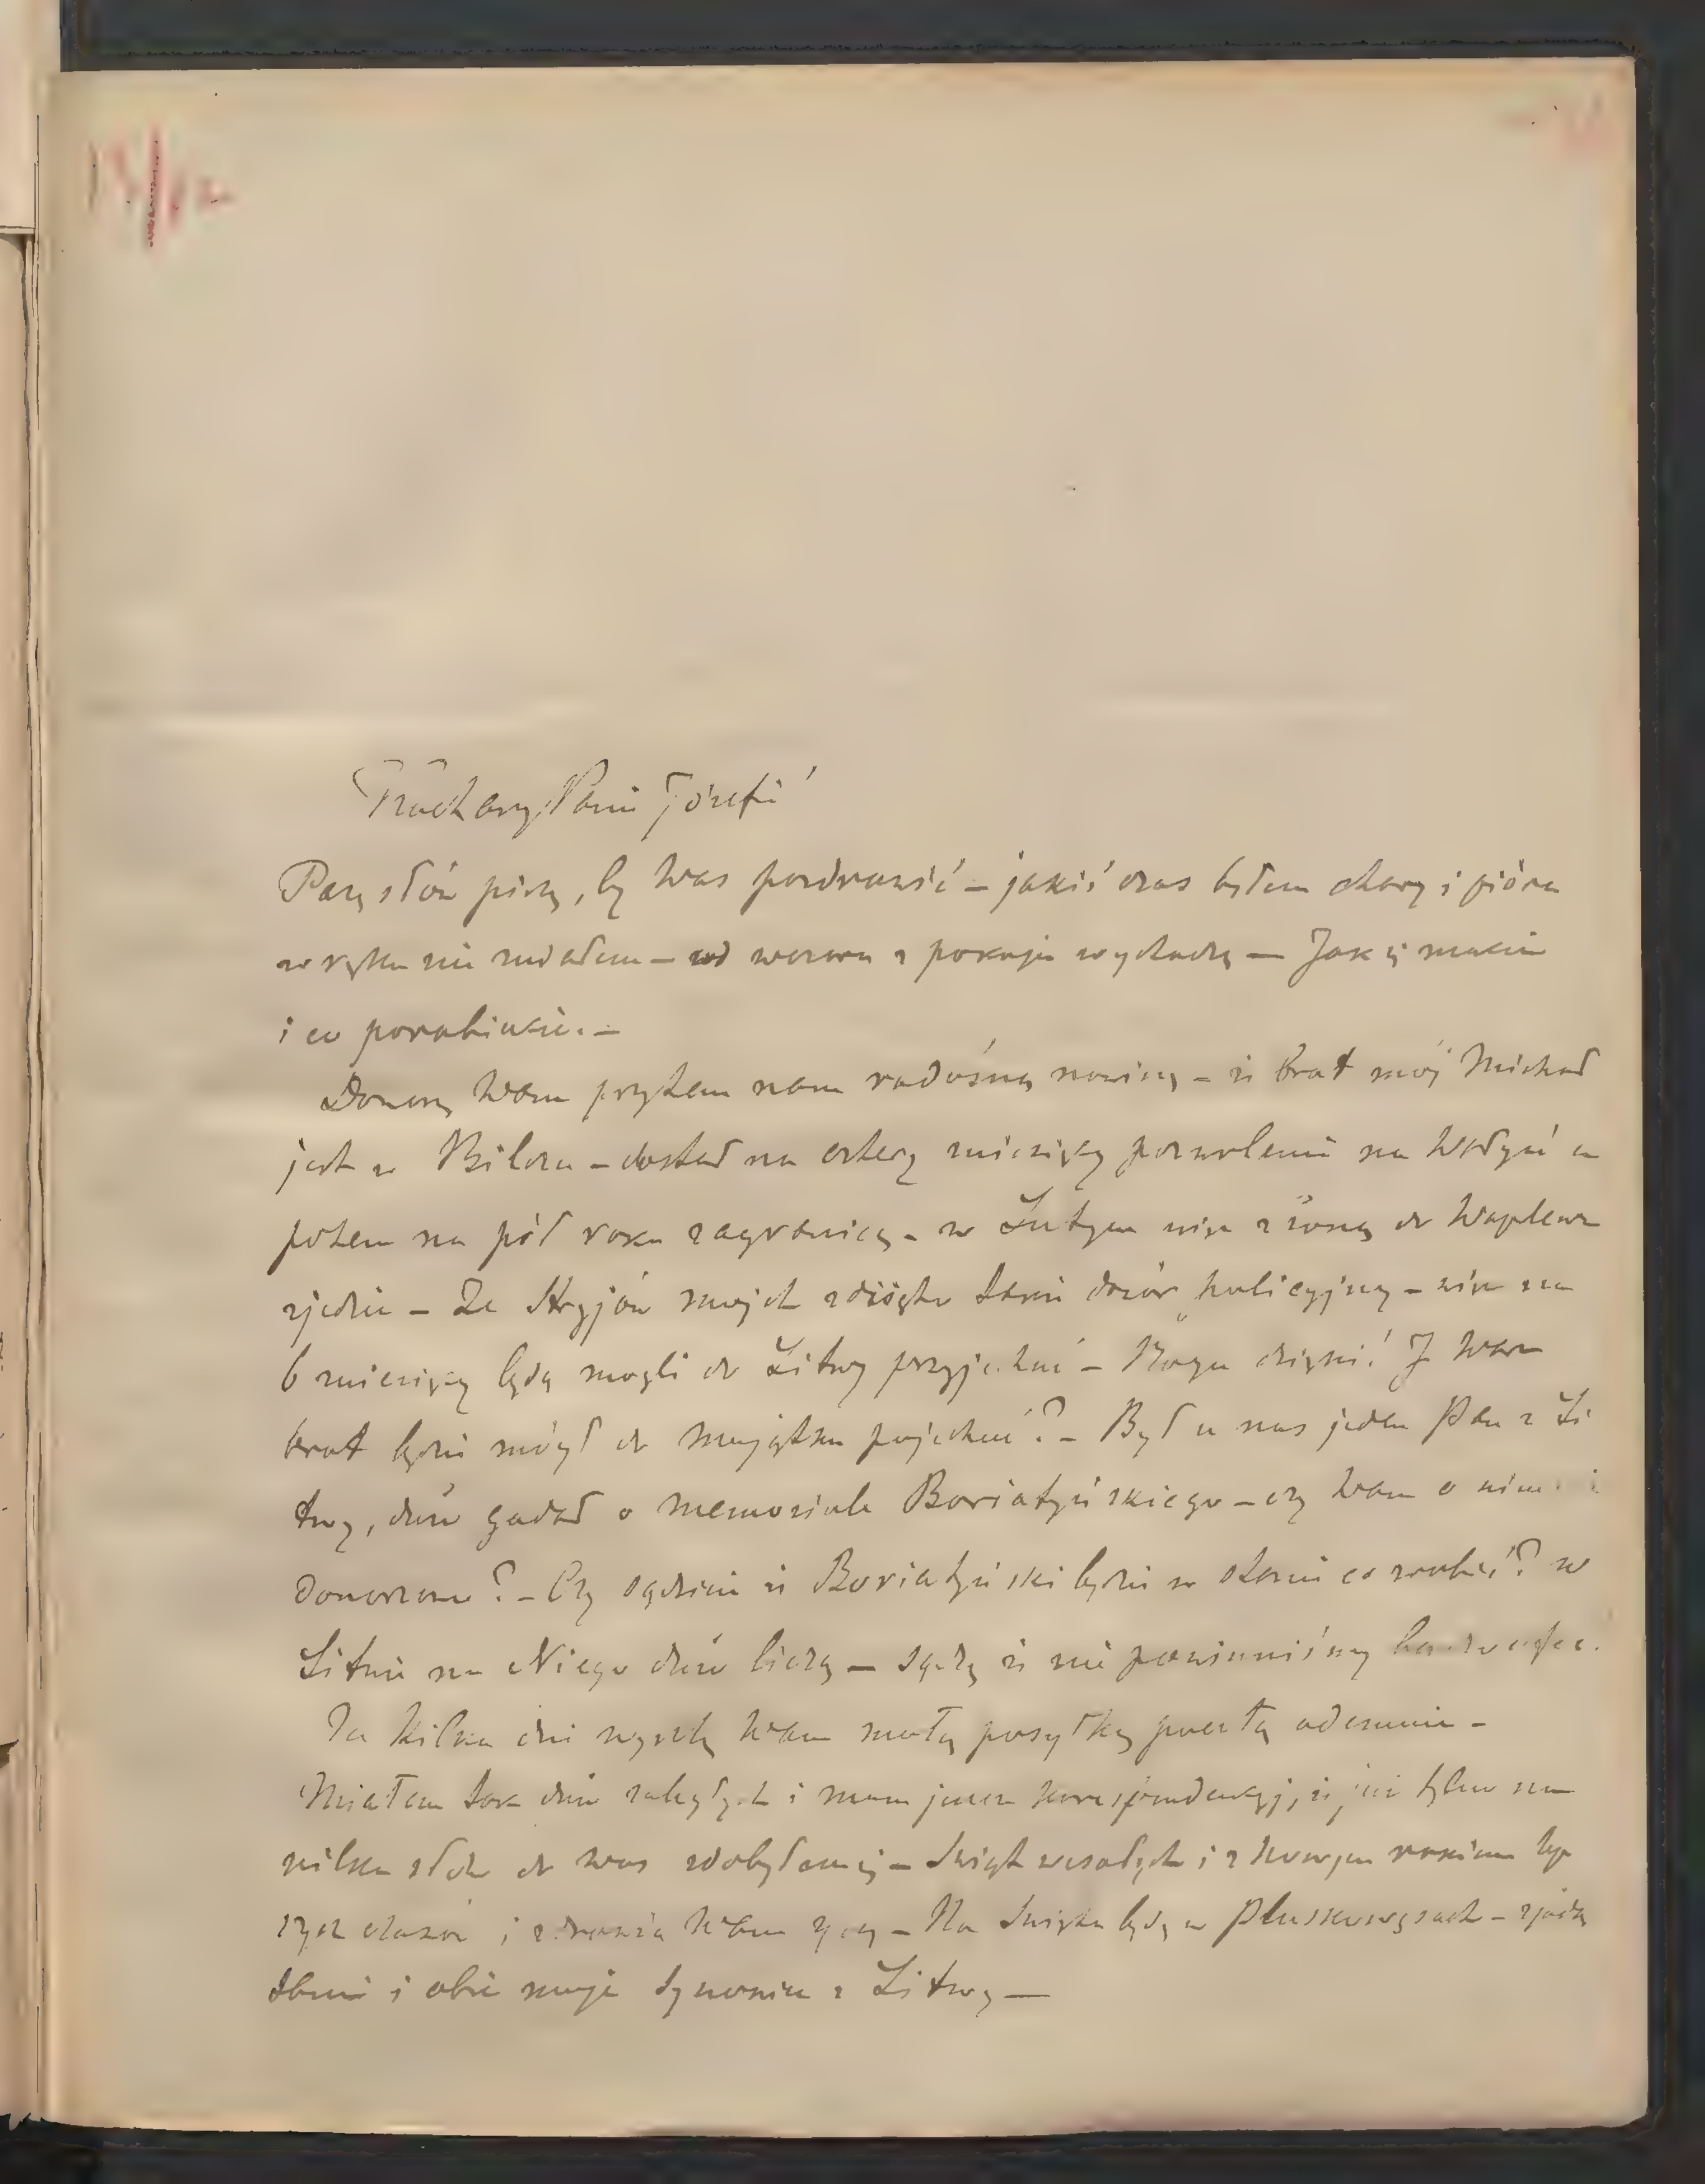 Kochany Panie Józefie!
Parę słów piszę, by Was pozdrowić – jakiś czas byłem chory i pióra
w ręku nie miałem – od wczora z pokoju wychodzę — Jak się macie
i co porabiacie. –
Donoszę Wam przytem nam radosną nowinę – iż brat mój Michał
jest w – dostał na cztery miesięcy pozwolenie na Wołyń a
potem na pół roku zagranicę – w Lutym więc z żoną do Waplewa
zjedzie – Ze Stryjów moich zdjęto dozór policyjny – więc na
6 miesięcy będą mogli do Litwy przyjechać – Bogu dzięki! I Wam
brat będzie mógł do majątku pojechać? – Był u nas jeden Pan z Li
twy, dużo gadał o memoriale Boriatyńskiego – czy Wam o nim
donoszono? – Czy sądzicie iż Boriatyński będzie w stanie co zrobić? w
Litwie na Niego dużo liczą — sądzę iż nie powinniśmy
Za kilka dni wyszlę Wam małą posyłkę pocztą adesunie –
Miałem tak dużo zaległych i mam jeszcze korespondencyj, iż już tylko na
kilka słów do Was zdobyłem się – Świąt wesołych i z Nowym rokiem lep
szych czasów i zdrowia Wam życzę – Na Święta będę w Pluskowęsach – zjadą
tam i obie moje Synowice z Litwy —